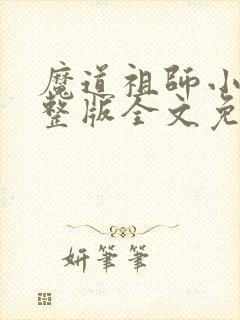 魔道祖師小
整版全文免
妍筆筆